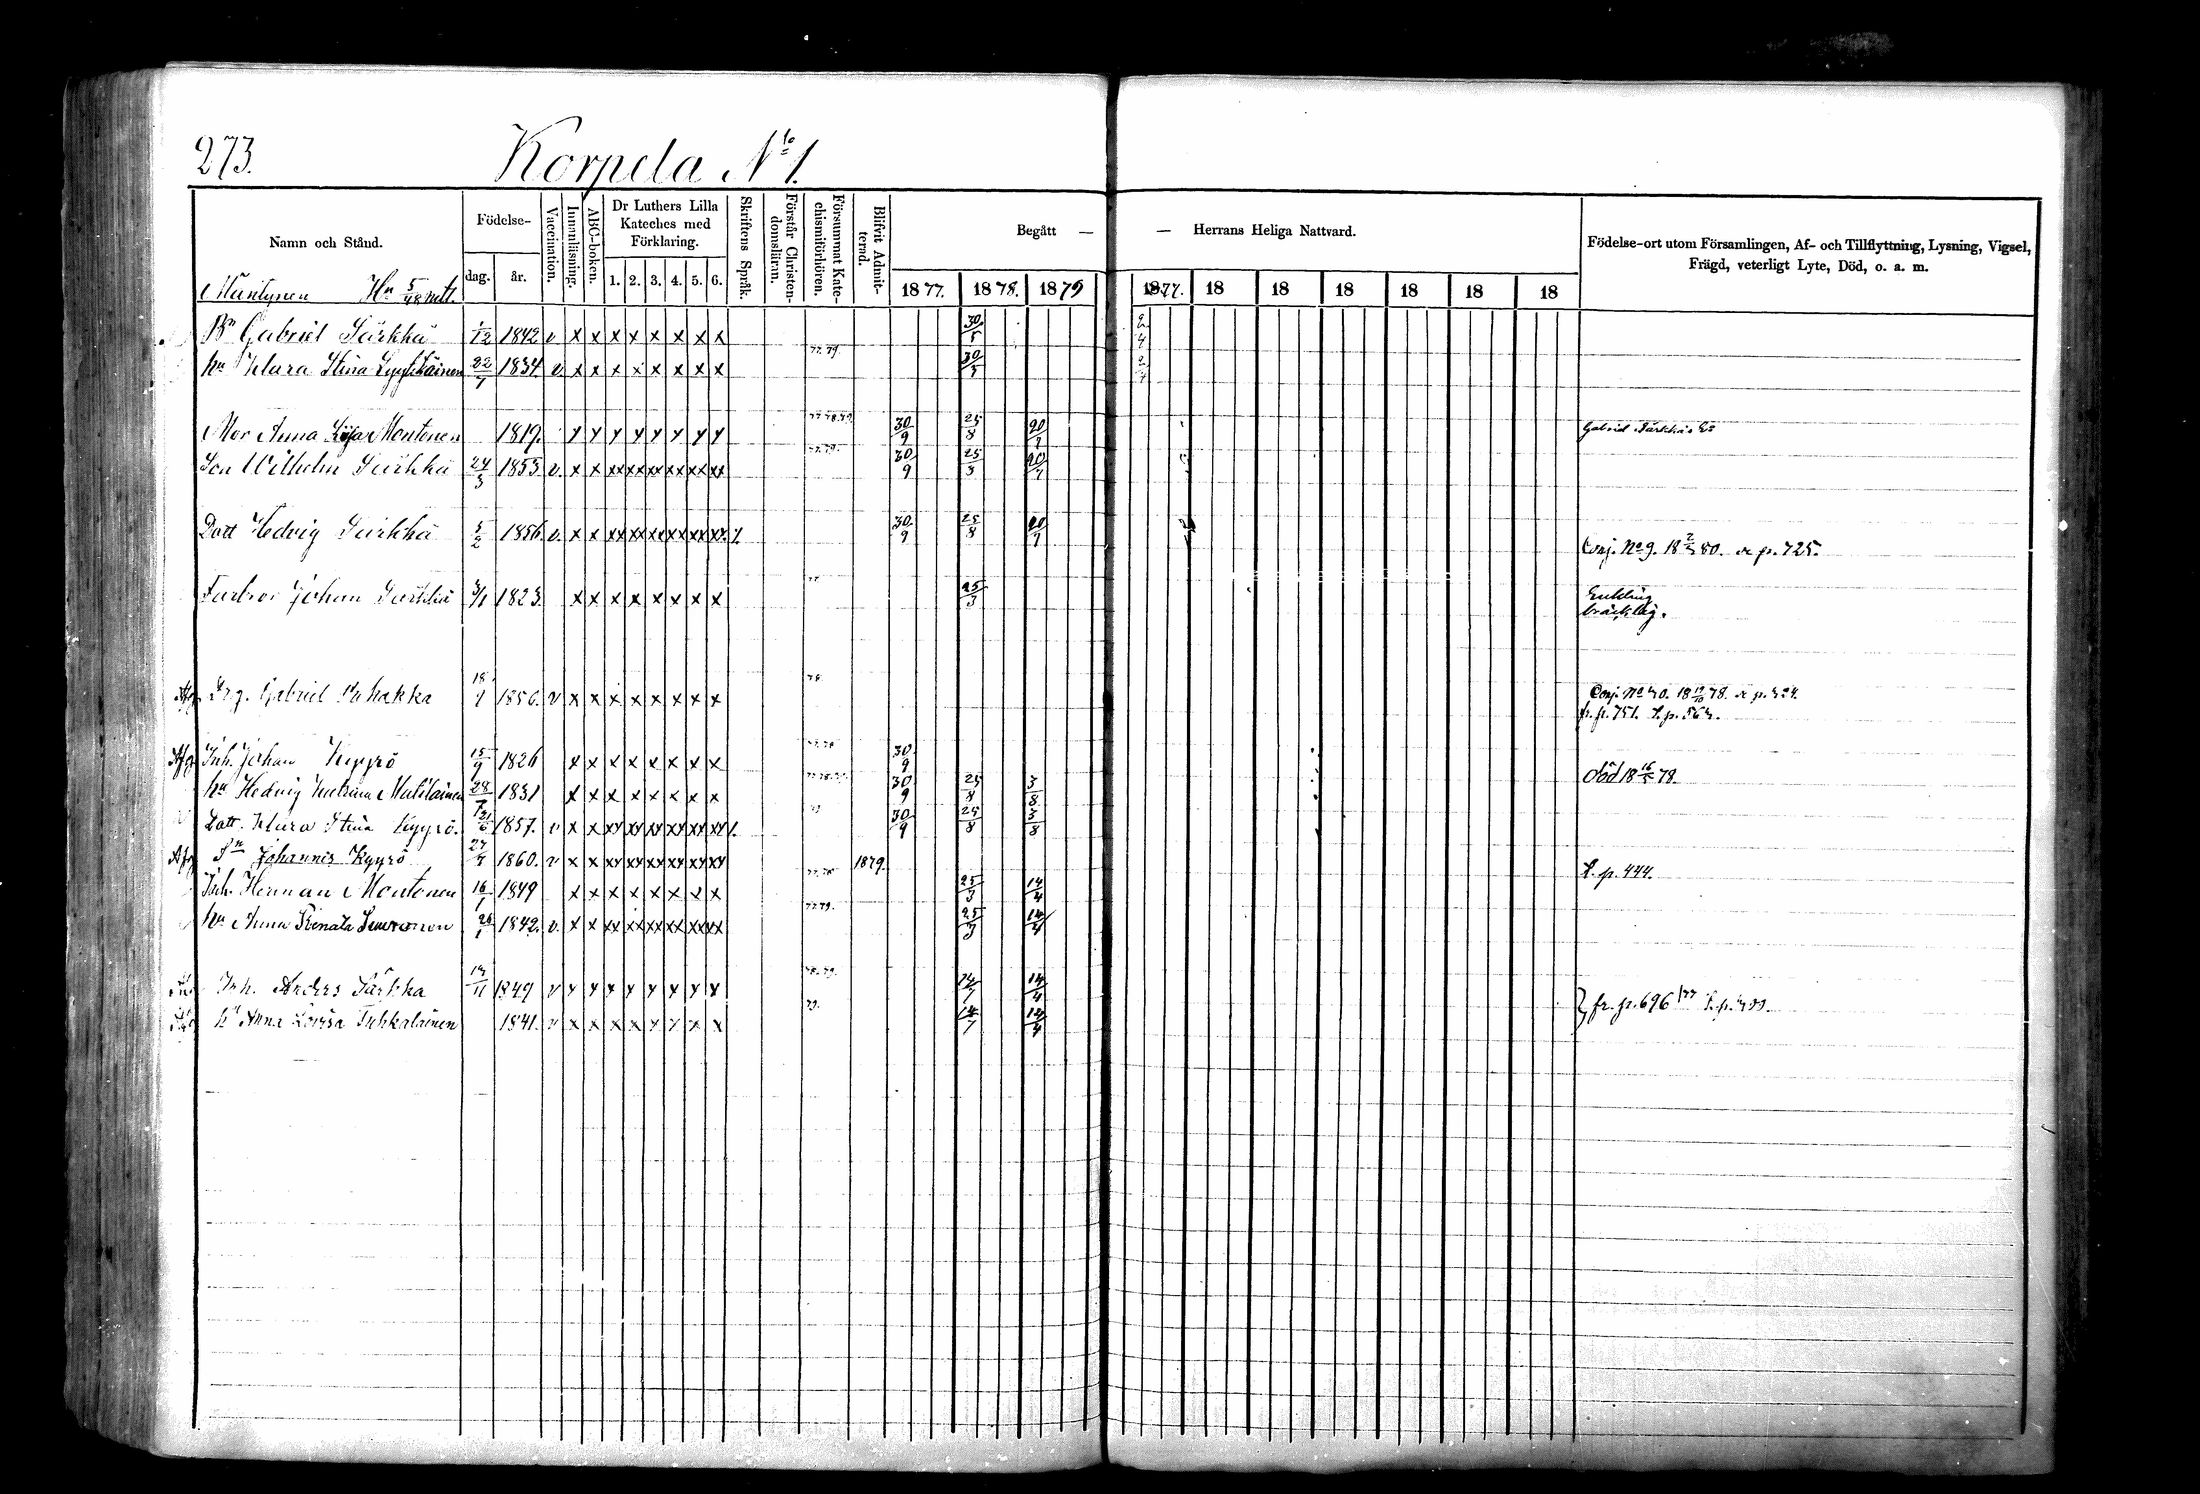 273. Korpela No 1.
Namn och Stånd. Födelse- dag. år. Vaccination. Innanläsning. ABC-boken. Dr Luthers Lilla Kateches med Förklaring. 1. 2. 3. 4. 5. 6. Skriftens Språk. Förstår Christendomsläran. Försummat Katechismiförhören. Blifvit Admitterad. Begått — — Herrans Heliga Nattvard. Födelse-ort utom Församlingen, Af- och Tillflyttning, Lysning, Vigsel, Frägd, veterligt Lyte, Död, o. a. m.
Mäntynen Hn 5/48 mtl. 1877. 1878. 1879 1877. 18 18 18 18 18 18
Bn Gabriel Särkkä 1/12 1842 v x x x x x x x x 30/5
hu Klara Stina 22/7 1834. v. x x x x x x x x 77. 79. 30/5
Mor Anna Montonen 1819. 77.78.79. 30/9 25/8 20/7 Gabriel Särkkäs
Son Wilhelm Särkkä 24/3 1853. v. x x xx xx xx xx xx xx 77.79. 30/9 25/3 20/7
Dott Hedvig Särkkä 1856. v. x x xx xx xx xx xx xx 30/9 25/8 20/7
Conj. No 9. 18 80. p. 725.
Farbror Johan Särkkä 1823. x x x x x x x x 77. 25/3 Enklling
bräcklig.
Afg Drg. Gabriel Puhakka 18/9 1856. v x x x x x x x x 78. Conj. No 40. 18 19/10 78.
fr. p. 751.
Afg Inh. Johan Kyyrö 15/9 1826 x x x x x x x x 77.78 30/9 död 18 78.
hu Hedvig Katrina Matilainen 28/7 1831 x x x x x x x x 77.78.79. 30/9 25/8 3/8
Dott. Klara Stina Kyyrö. 21/6 1857. v x x xx xx xx xx xx xx 30/9 25/8 3/8
Afg Sn Johannes Kyyrö 27/7 1860. v x x xx xx xx xx xx xx 1879. t. p. 444.
Inh. Herman Montonen 16/1 1849 x x x x x x x x 77.78 25/3 14/4
hu Anna Renata 26/1 1842. v. x x xx xx xx xx xx xx 77.79. 25/3 14/4
Inh. Anders Särkkä 14/11 1849 78.79. 14/7 14/4
hu Anna Lovisa Tuhkalainen 1841. v x x x x x 79. 14/7 14/4 } fr. p. 696 /77